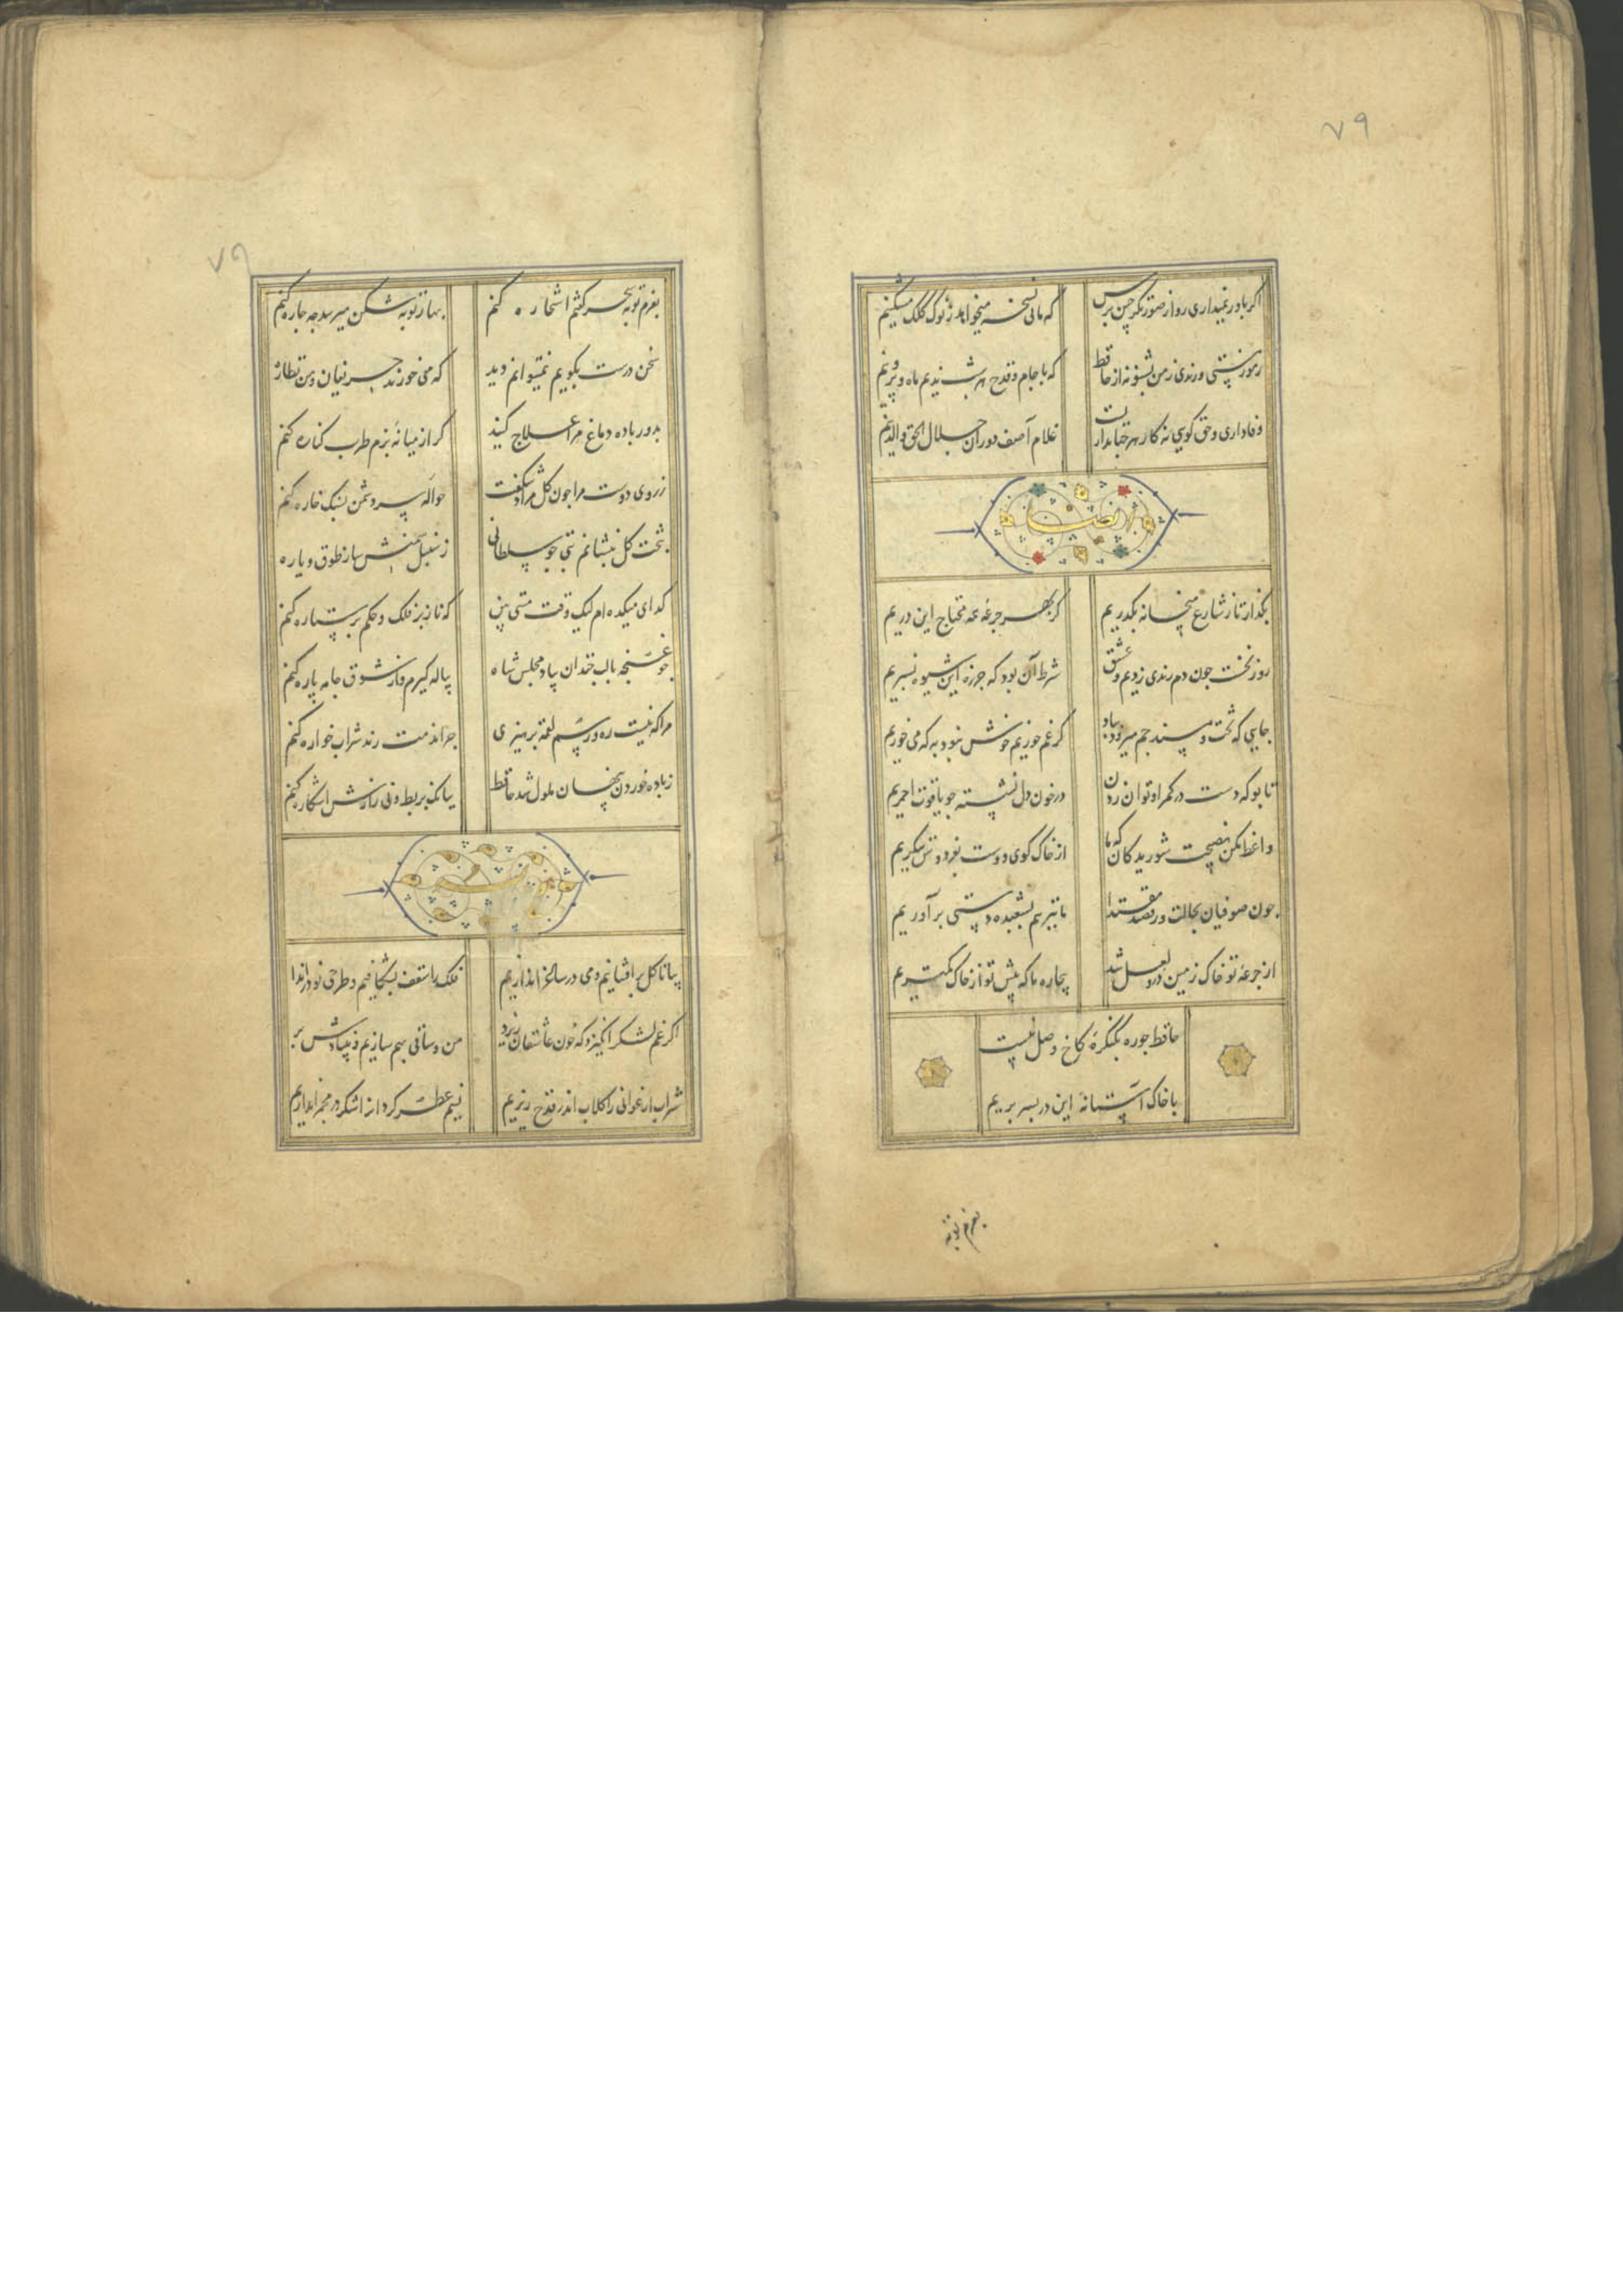 ۷۹
اگر باور نمیداری رو از صورتگر چین پرس
که مانی نسخه میخواهد ز نوک کلک مشکینم
رموز مستی و رندی ز من بشنو نه از حافظ
که با جام و قدح هر شب ندیم ماه و پروینم
وفاداری و حق گویی نه کار هر کسی باشد
غلام آصف دوران جلال الحق والدینم
ایضا
بگذار تا ز شارع میخانه بگذریم
کز بهر جرعه همه محتاج این دریم
روز نخست چون دم رندی زدیم و عشق
شرط آن بود که جز ره این شیوه نسپریم
جایی که تخت و مسند جم میرود بباد
گر غم خوریم خوش نبود به که می خوریم
تا بو که دست در کمر او توان زدن
در خون دل نشسته چو یاقوت احمریم
واعظ مکن نصیحت شوریدکان که ما
از خاک کوی دوست بفردوس ننگریم
چون صوفیان بحالت و رقصند مقتدا
ما نیز هم بشعبده دستی برآوریم
از جرعه تو خاک زمین در و لعل شد
بیچاره ما که پیش تو از خاک کمتریم
حافظ چو ره بکنگره کاخ وصل نیست
با خاک آستانه این در بسر بریم
بعزم توبه
۷۹
بعزم توبه سحر گفتم استخاره کنم
بهار توبه شکن میرسد چه چاره کنم
سخن درست بگویم نمیتوانم دید
که می خورند حریفان و من نظاره
بدور باده دماغ مرا علاج کنید
گر از میانه بزم طرب کناره کنم
ز روی دوست مرا چون گل مراد شکفت
حواله سر دشمن بسنگ خاره کنم
بتخت گل بنشانم بتی چو سلطانی
ز سنبل سمنش ساز طوق و یاره
گدای میکده ام لیک وقت مستی بین
که ناز بر فلک و حکم بر ستاره کنم
چو غنچه با لب خندان بیاد مجلس شاه
پیاله گیرم و از شوق جامه پاره کنم
مرا که نیست ره و رسم لقمه پرهیزی
چرا مذمت رند شراب خواره کنم
ز باده خوردن پنهان ملول شد حافظ
ببانک بربط و نی رازش آشکاره کنم
بیا تا گل برافشانیم و می در ساغر اندازیم
فلک را سقف بشکافیم و طرحی نو دراندا
اگر غم لشکر انگیزد که خون عاشقان ریزد
من و ساقی بهم سازیم و بنیادش بر
شراب ارغوانی را گلاب اندر قدح ریزیم
نسیم عطر گردان را شکر در مجمر اندازیم